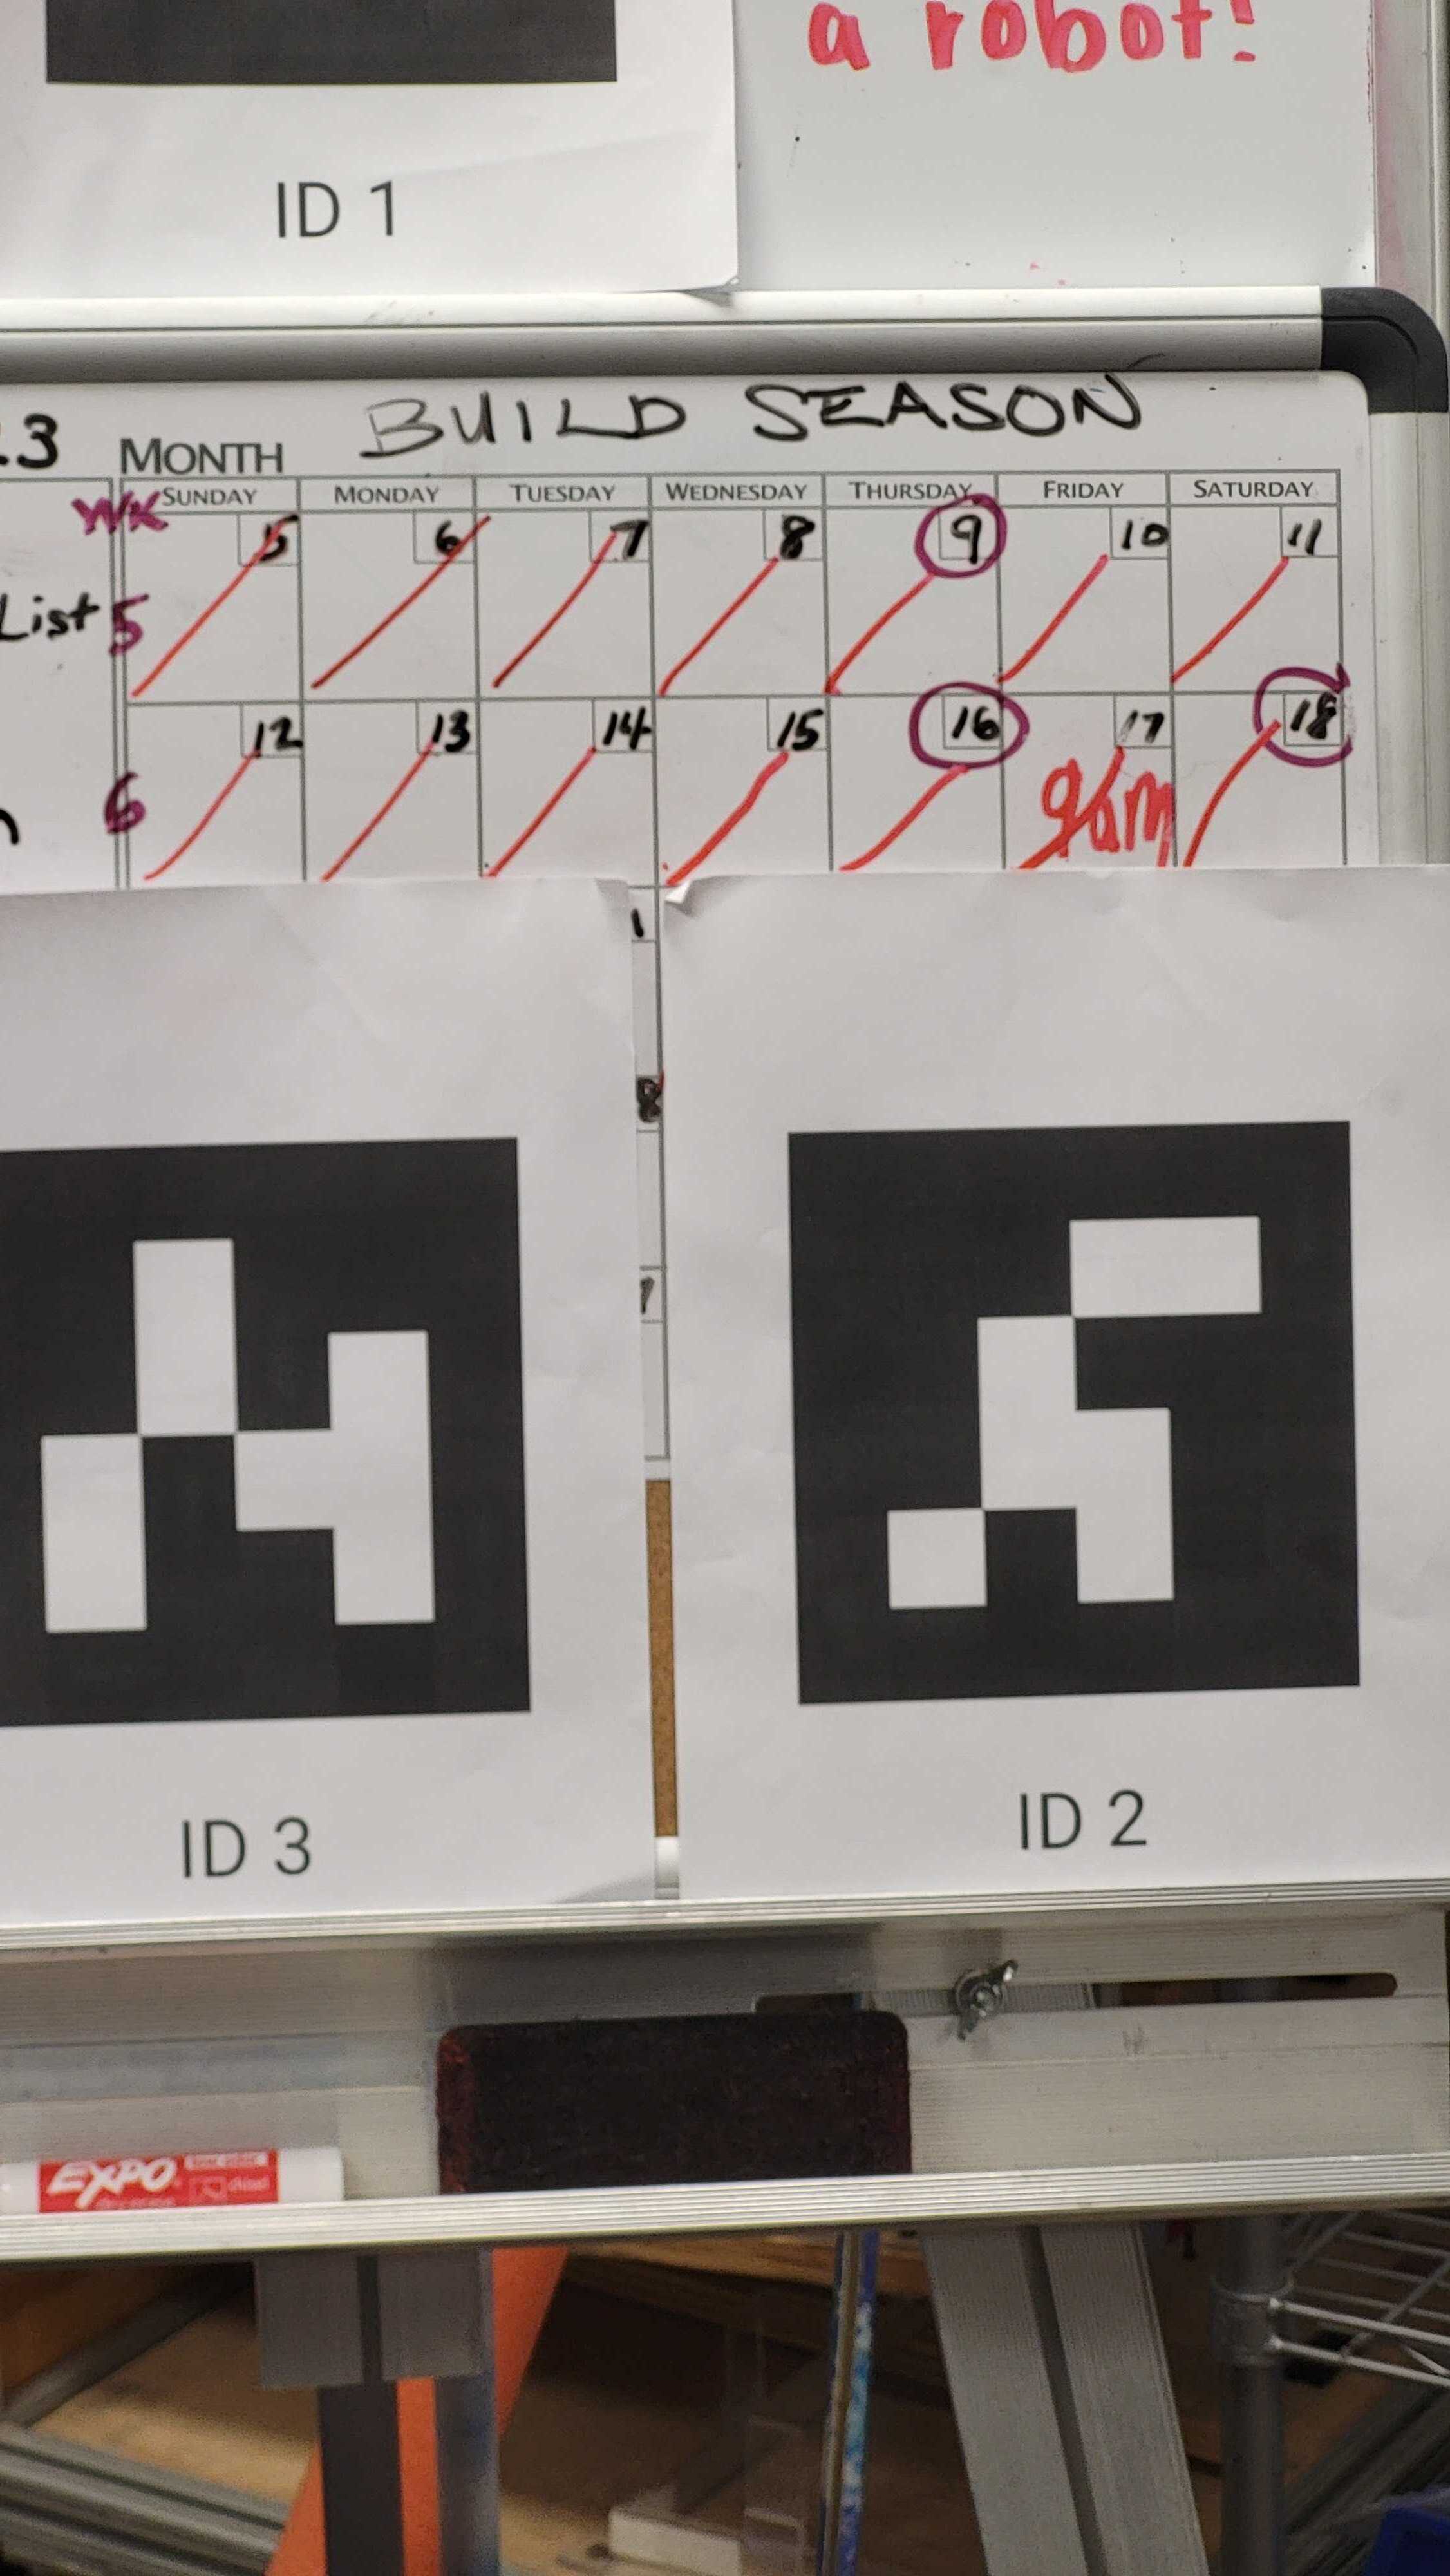 a robot!
ID 1
.3 MONTH BUILD SEASON
WK SUNDAY MONDAY TUESDAY WEDNESDAY THURSDAY FRIDAY SATURDAY
5 6 7 8 9 10 11
List 5
12 13 14 15 16 17 18
6 9am
1
8
ID 3 ID 2
EXPO
chisel